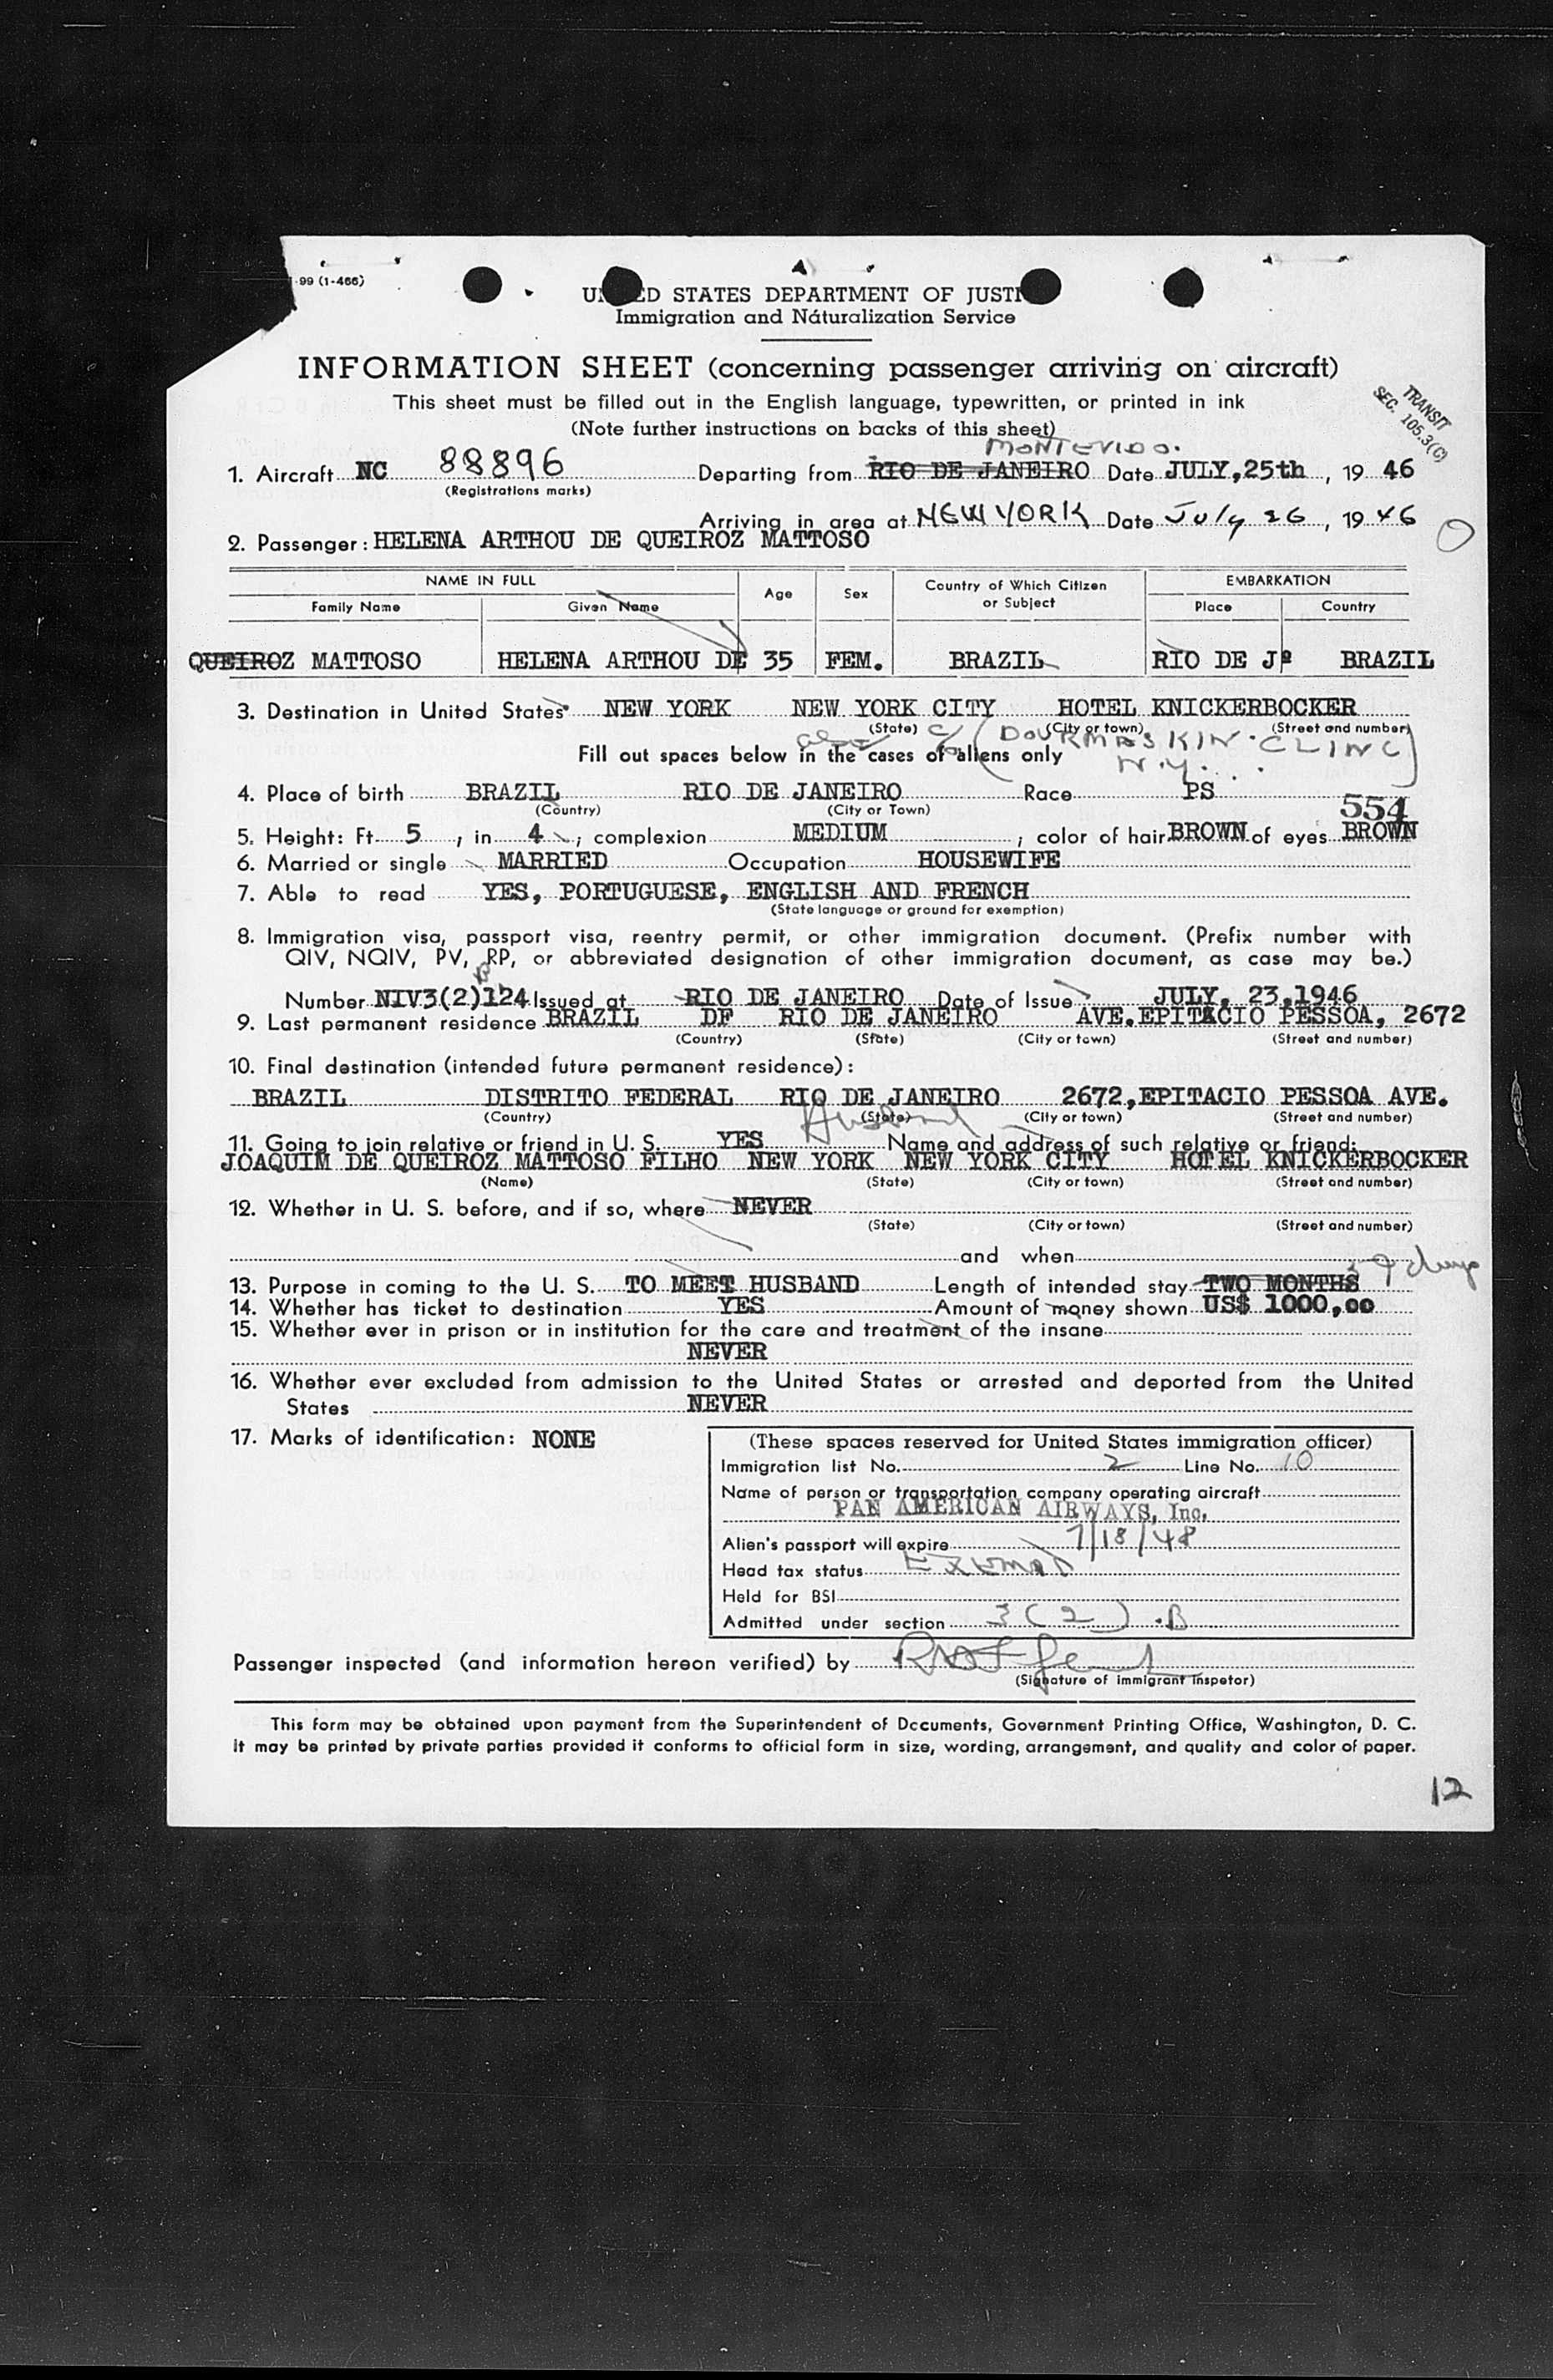 -99 (1-466)
UNITED STATES DEPARTMENT OF JUSTI
Immigration and Náturalization Service
INFORMATION SHEET (concerning passenger arriving on aircraft)
This sheet must be filled out in the English language, typewritten, or printed in ink
(Note further instructions on backs of this sheet)
TRANSIT
SEC. 105.3(C)
MONTEVIDO.
1. Aircraft NC 88896 Departing from RIO DE JANEIRO Date JULY,25th, 19 46
(Registrations marks)
Arriving in area at NEW YORK Date July 26, 19 46
2. Passenger: HELENA ARTHOU DE QUEIROZ MATTOSO
O
NAME IN FULL Age Sex Country of Which Citizen or Subject EMBARKATION
Family Name Given Name Place Country
QUEIROZ MATTOSO HELENA ARTHOU DE 35 FEM. BRAZIL RIO DE Jº BRAZIL
3. Destination in United States NEW YORK NEW YORK CITY HOTEL KNICKERBOCKER
(State) (City or town) (Street and number)
also c/o SKIN CLINC
Fill out spaces below in the cases of aliens only
N.Y.
4. Place of birth BRAZIL RIO DE JANEIRO Race PS
(Country) (City or Town)
554
5. Height: Ft. 5, in 4; complexion MEDIUM; color of hair BROWN of eyes BROWN
6. Married or single MARRIED Occupation HOUSEWIFE
7. Able to read YES, PORTUGUESE, ENGLISH AND FRENCH
(State language or ground for exemption)
8. Immigration visa, passport visa, reentry permit, or other immigration document. (Prefix number with
QIV, NQIV, PV, RP, or abbreviated designation of other immigration document, as case may be.)
B
Number NIV3(2)124 Issued at RIO DE JANEIRO Date of Issue JULY, 23,1946
9. Last permanent residence BRAZIL DF RIO DE JANEIRO AVE.EPITACIO PESSOA, 2672
(Country) (State) (City or town) (Street and number)
10. Final destination (intended future permanent residence):
BRAZIL DISTRITO FEDERAL RIO DE JANEIRO 2672,EPITACIO PESSOA AVE.
(Country) (State) (City or town) (Street and number)
Husband
11. Going to join relative or friend in U. S. YES Name and address of such relative or friend:
JOAQUIM DE QUEIROZ MATTOSO FILHO NEW YORK NEW YORK CITY HOTEL KNICKERBOCKER
(Name) (State) (City or town) (Street and number)
12. Whether in U. S. before, and if so, where NEVER
(State) (City or town) (Street and number)
and when
days
13. Purpose in coming to the U. S. TO MEET HUSBAND Length of intended stay TWO MONTHS
14. Whether has ticket to destination YES Amount of money shown US$ 1000,00
15. Whether ever in prison or in institution for the care and treatment of the insane
NEVER
16. Whether ever excluded from admission to the United States or arrested and deported from the United
States NEVER
17. Marks of identification: NONE
(These spaces reserved for United States immigration officer)
Immigration list No. 2 Line No. 10
Name of person or transportation company operating aircraft
PAN AMERICAN AIRWAYS, Inc.
Alien's passport will expire 7/18/48
Head tax status Exempt
Held for BSI
Admitted under section 3(2).B
Passenger inspected (and information hereon verified) by
(Signature of immigrant inspetor)
This form may be obtained upon payment from the Superintendent of Documents, Government Printing Office, Washington, D. C.
It may be printed by private parties provided it conforms to official form in size, wording, arrangement, and quality and color of paper.
12